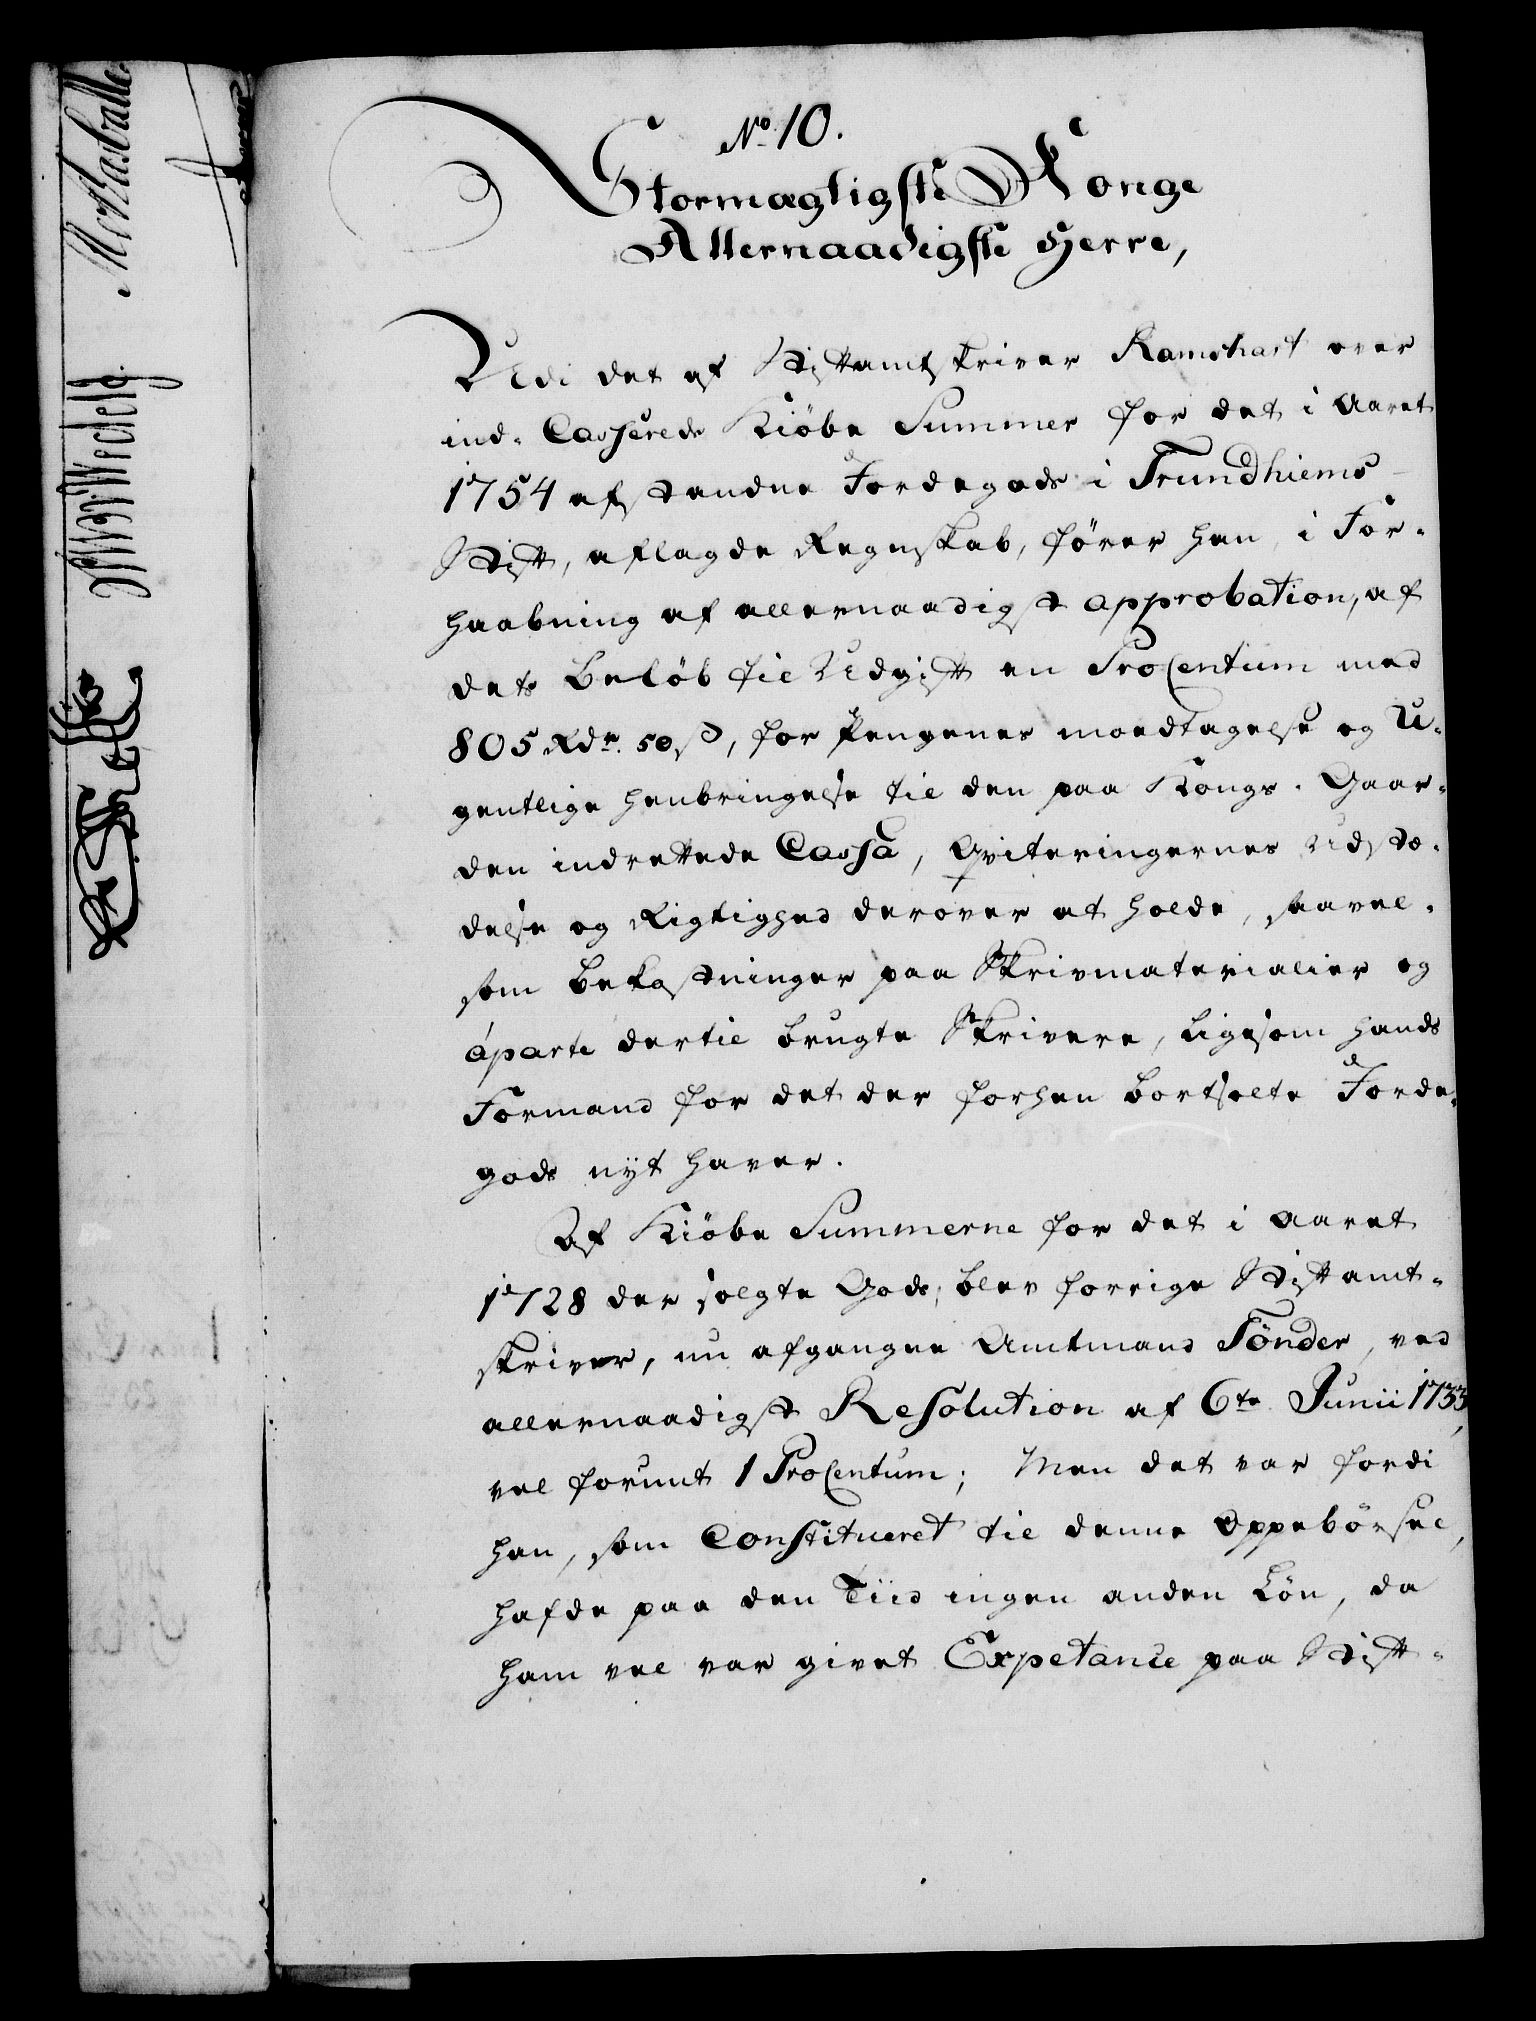 No. 10.
Stormægtigste Konge
Allernaadigste Herre,
Udi det af Stiftamtskriver Ramshart over
ind- Casserede Kiöbe Summer for det i Aaret
1754 afstandne Jordegods i Trundhiems
Stift, aflagde Regnskab, fører han, i For-
haabning af allernaadigst approbation, af
dets Beløb til Udgift en ProCentum med
805 Rdr. 50 ß, for Pengenes modtagelse og U-
gentlige henbringelse til den paa Kongs-Gaar-
den indrettede Cassa, Qviteringernes Udstæ-
delse og Rigtighed derover at holde, saavel-
som Bekostninger paa Skrivmaterialier og
áparte dertil brugte Skrivere, ligesom hands
Formand for det der forhen bortsolte Jorde-
gods nyt haver.
Af Kiöbe Summerne for det i Aaret
1728 der solgte Gods, blev forrige Stiftamt-
skriver, nu afgangne Amtmand Tönder, ved
allernaadigst Resolution af 6te Junii 1733,
vel forunt 1 ProCentum; Men det var fordi
han, som Constitueret til denne Oppebörsel,
hafde paa den Tiid ingen anden Lön, da
ham vel var givet Expetance paa Stift-